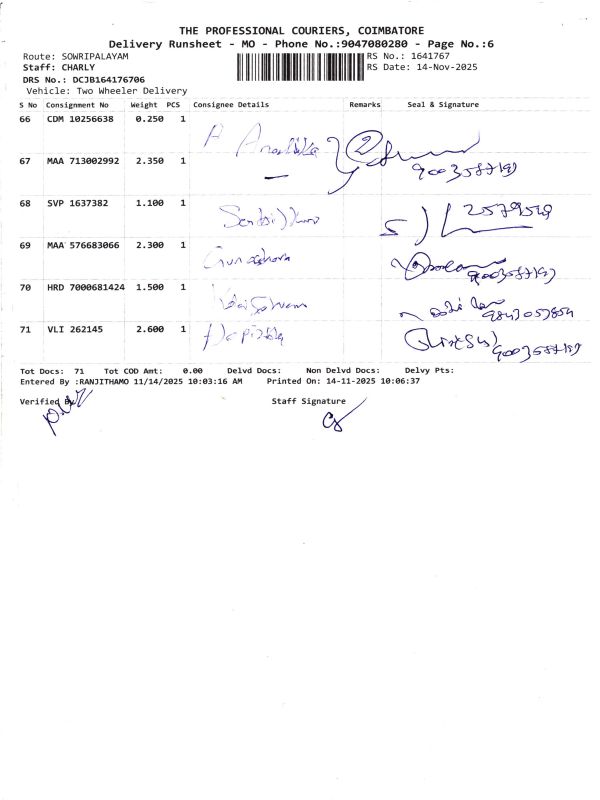 THE PROFESSIONAL COURIERS, COIMBATORE
Delivery Runsheet - MO - Phone No.:9047080280 - Page No.:6
Route: SOWRIPALAYAM RS No.: 1641767
Staff: CHARLY RS Date: 14-Nov-2025
DRS No.: DCJB164176706
Vehicle: Two Wheeler Delivery
S No Consignment No Weight PCS Consignee Details Remarks Seal & Signature
66 CDM 10256638 0.250 1 A
67 MAA 713002992 2.350 1 9003587199
68 SVP 1637382 1.100 1
69 MAA 576683066 2.300 1 9003587197
70 HRD 7000681424 1.500 1
71 VLI 262145 2.600 1 9003587199
Tot Docs: 71 Tot COD Amt: 0.00 Delvd Docs: Non Delvd Docs: Delvy Pts:
Entered By :RANJITHAMO 11/14/2025 10:03:16 AM Printed On: 14-11-2025 10:06:37
Verified By Staff Signature